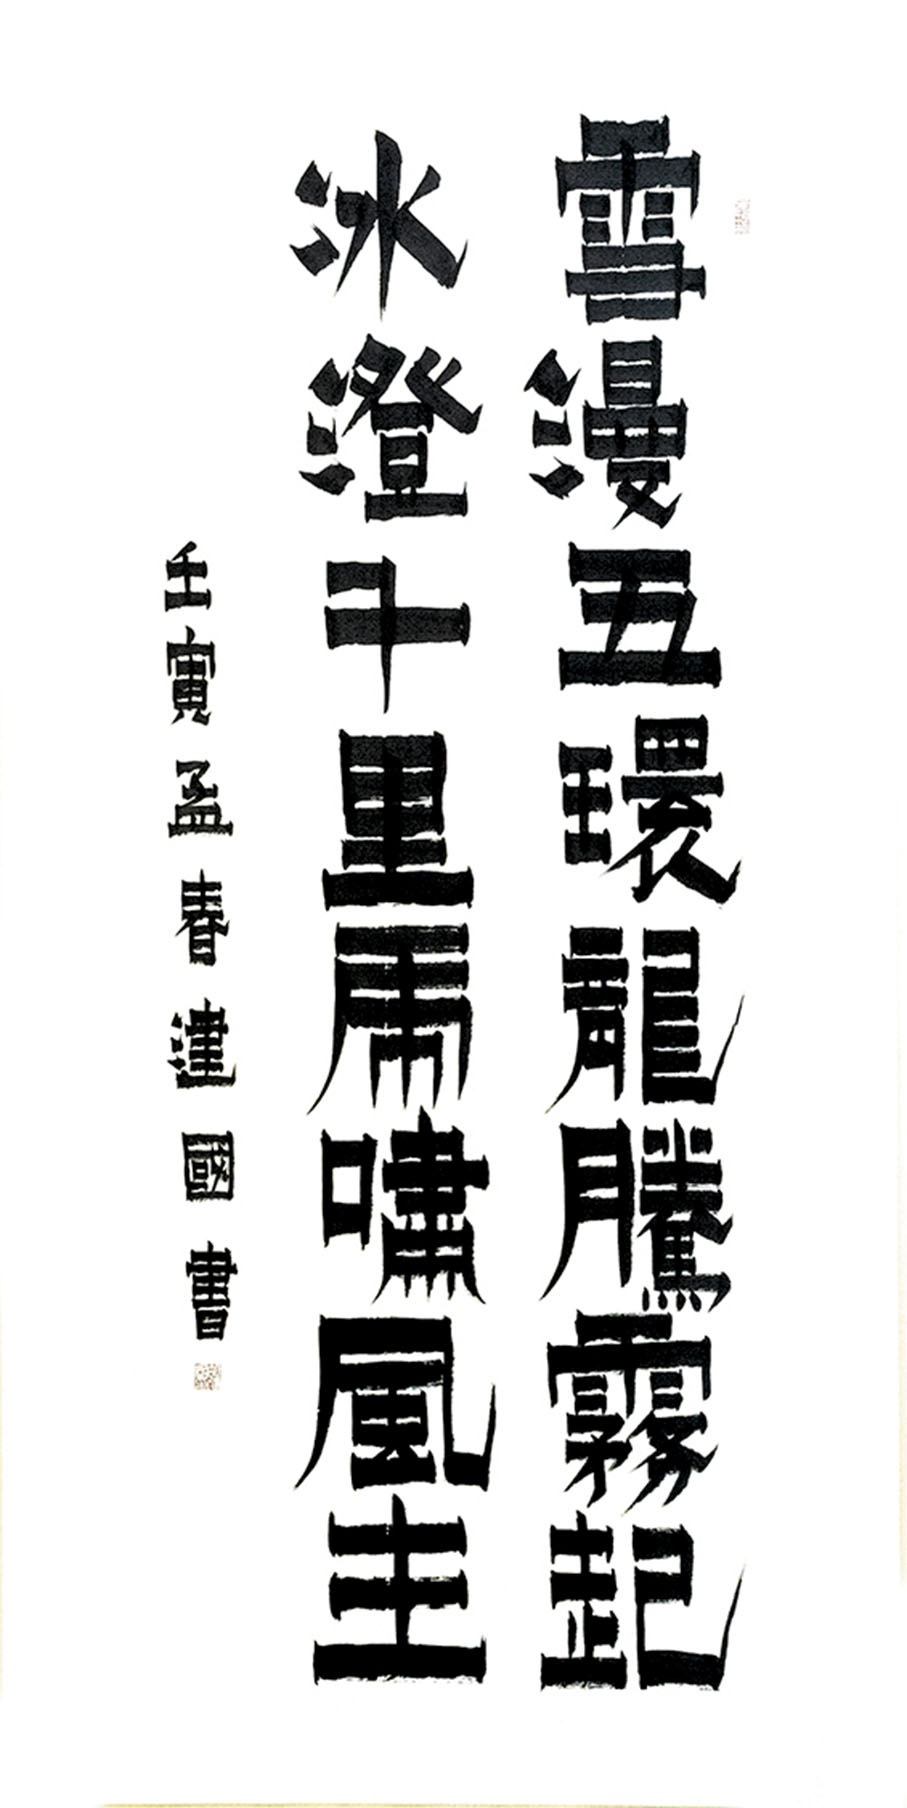 雪漫五環龍騰霧起
冰澄千里虎嘯風生
壬寅孟春建國書